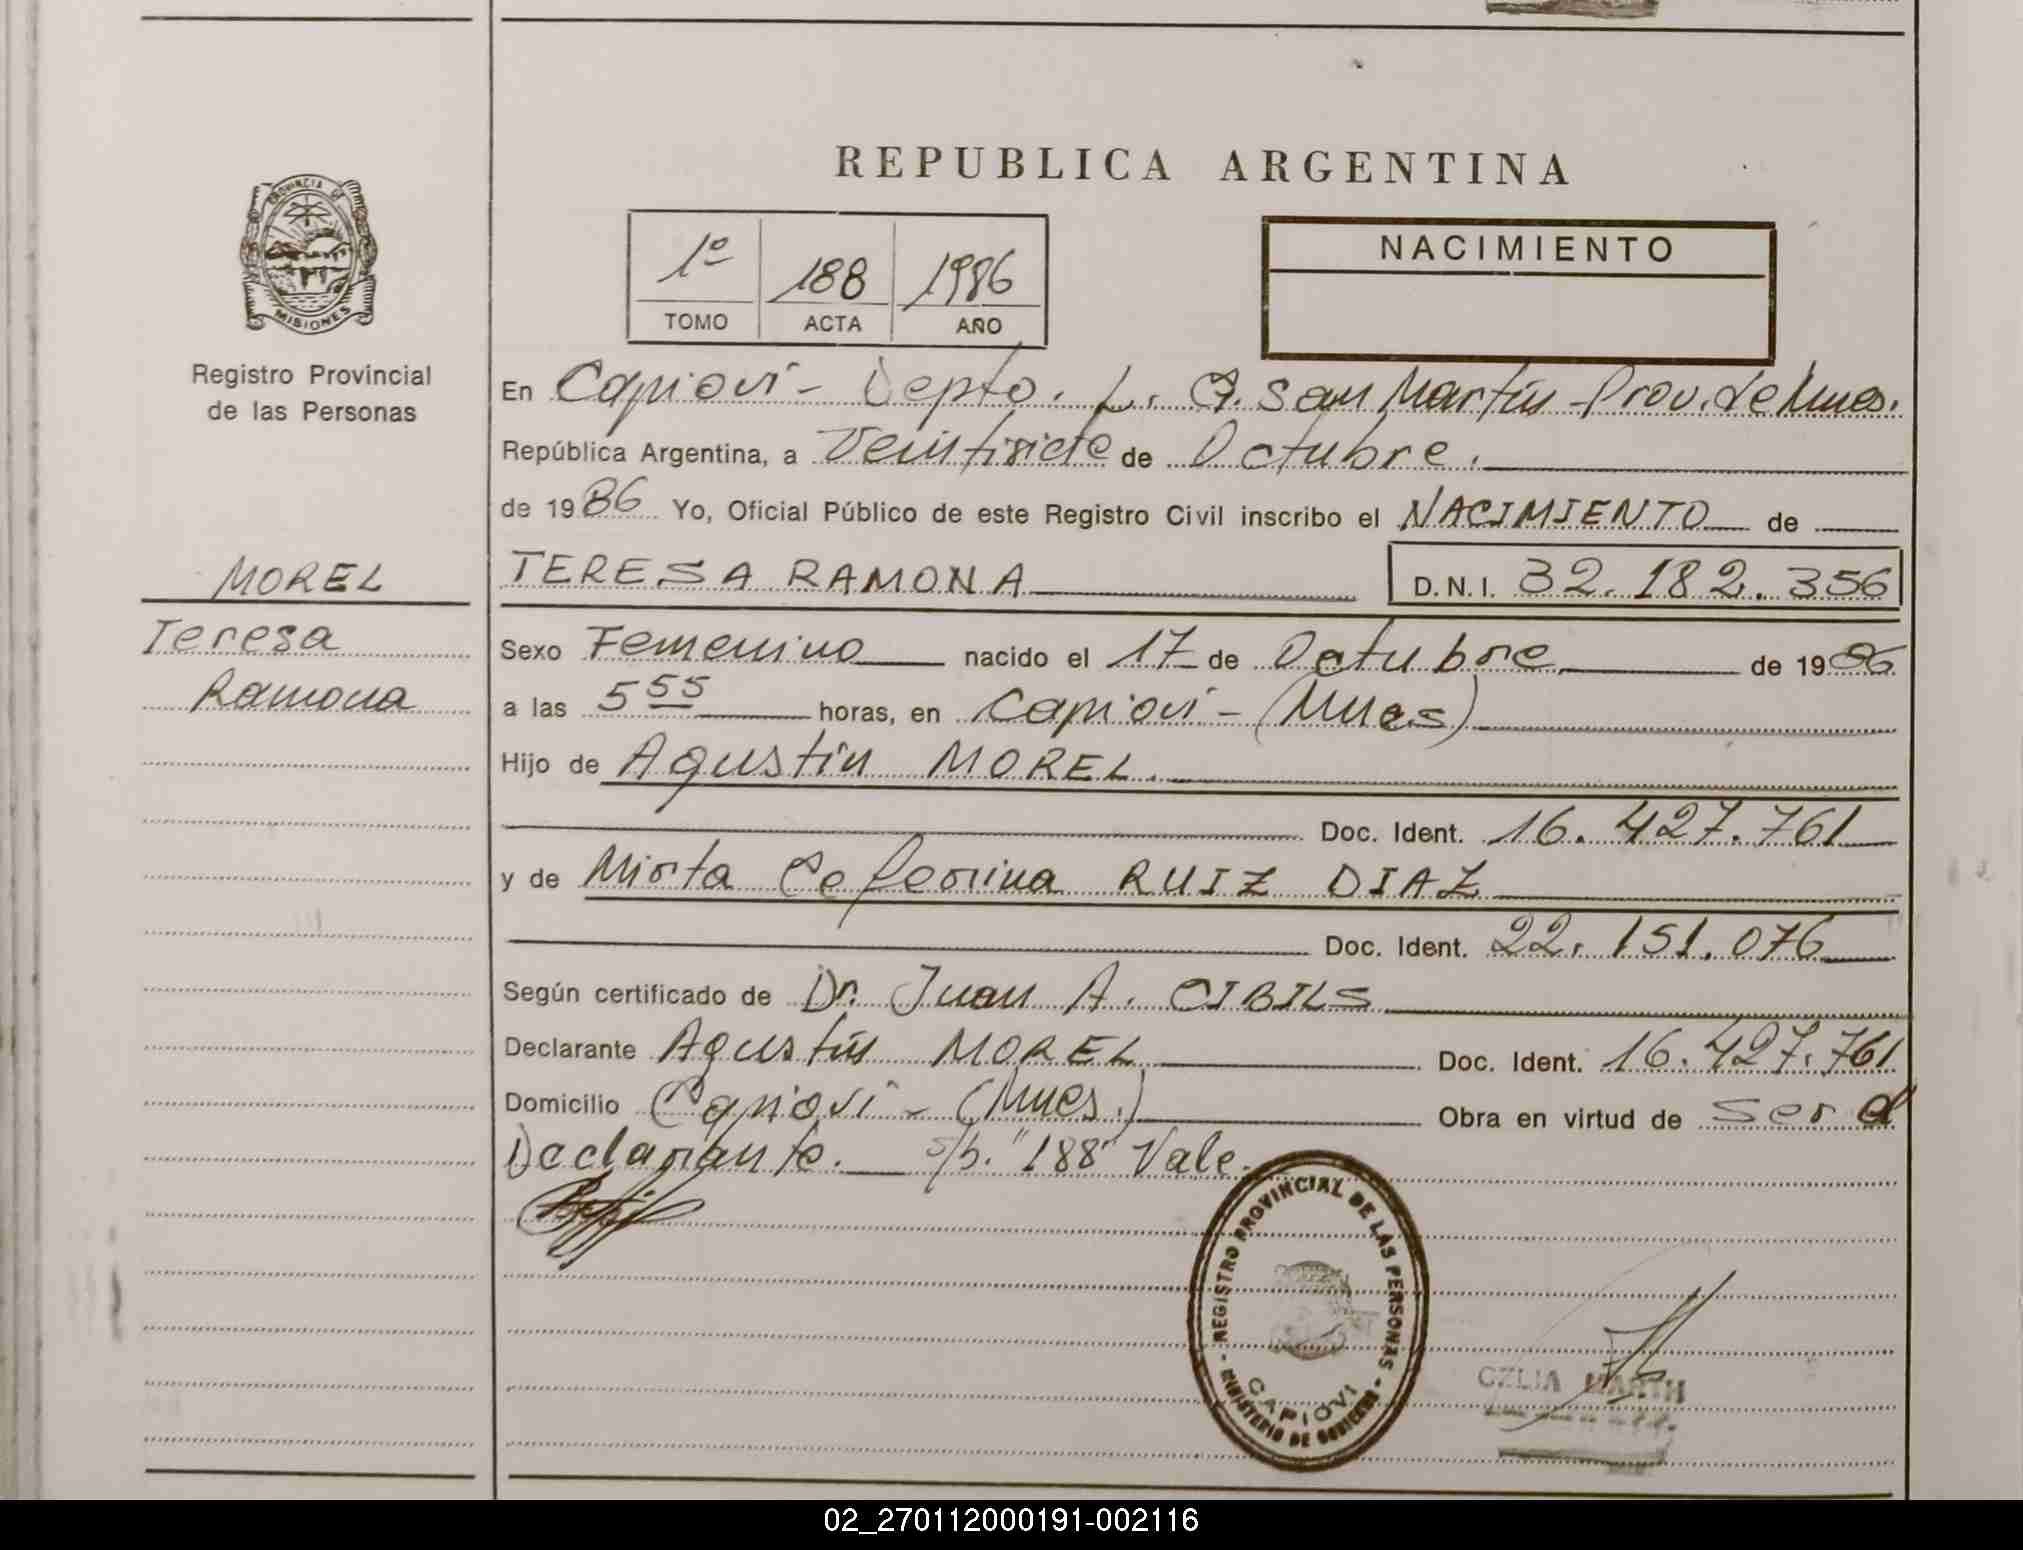 REPUBLICA ARGENTINA
PROVINCIA DE
MISIONES
Registro Provincial
de las Personas
1º 188 1986
TOMO ACTA AÑO
NACIMIENTO
En Capioví - Depto. L. G. San Martín - Prov. de Mnes.
República Argentina, a Veintisiete de Octubre.
de 1986 Yo, Oficial Público de este Registro Civil inscribo el NACIMIENTO de
MOREL
TERESA RAMONA D.N.I. 32.182.356
Teresa
Ramona
Sexo Femenino nacido el 17 de Octubre de 1986
a las 5 55 horas, en Capioví - (Mnes)
Hijo de Agustín MOREL.
Doc. Ident. 16.427.761
y de Mirta Ceferina RUIZ DIAZ
Doc. Ident. 22.151.076
Según certificado de Dr. Juan A. CIBILS
Declarante Agustín MOREL Doc. Ident. 16.427.761
Domicilio Capioví - (Mnes.) Obra en virtud de ser el
Declarante. s/b. "188" Vale.
REGISTRO PROVINCIAL DE LAS PERSONAS
CAPIOVI
MINISTERIO DE GOBIERNO
02_270112000191-002116